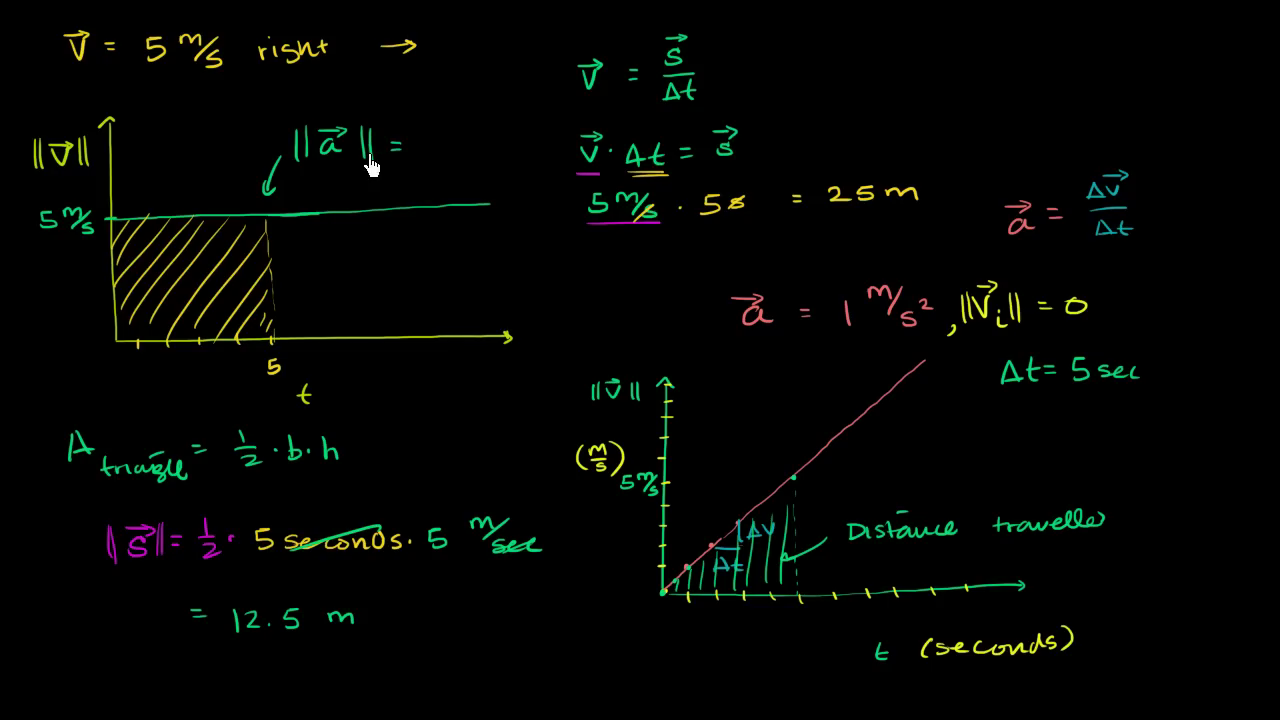 v⃗ = 5 m/s right →
‖v⃗‖
5 m/s
‖a⃗‖ =
5
t
A triangle = 1/2 · b · h
‖s⃗‖ = 1/2 · 5 seconds · 5 m/sec
= 12.5 m
v⃗ = s⃗/Δt
v⃗ · Δt = s⃗
5 m/s · 5s = 25 m
a⃗ = Δv⃗/Δt
a⃗ = 1 m/s², ‖v⃗ᵢ‖ = 0
Δt = 5 sec
‖v⃗‖
(m/s)
5 m/s
Δv
Δt
Distance travelled
t (seconds)